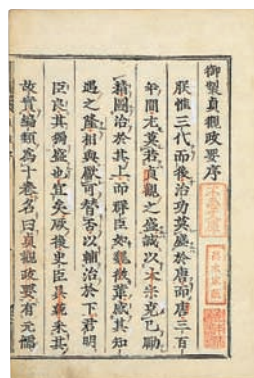 御製貞觀政要序
朕惟三代而後治功莫盛於唐而唐三百
年間尤莫若貞觀之盛誠以太宗克己勵
精圖治於其上而群臣如魏徵輩感其知
遇之隆相與獻可替否以輔治於下君明
臣良其獨盛也宜矣厥後史臣吳兢采其
故實編類為十卷名曰貞觀政要有元儒